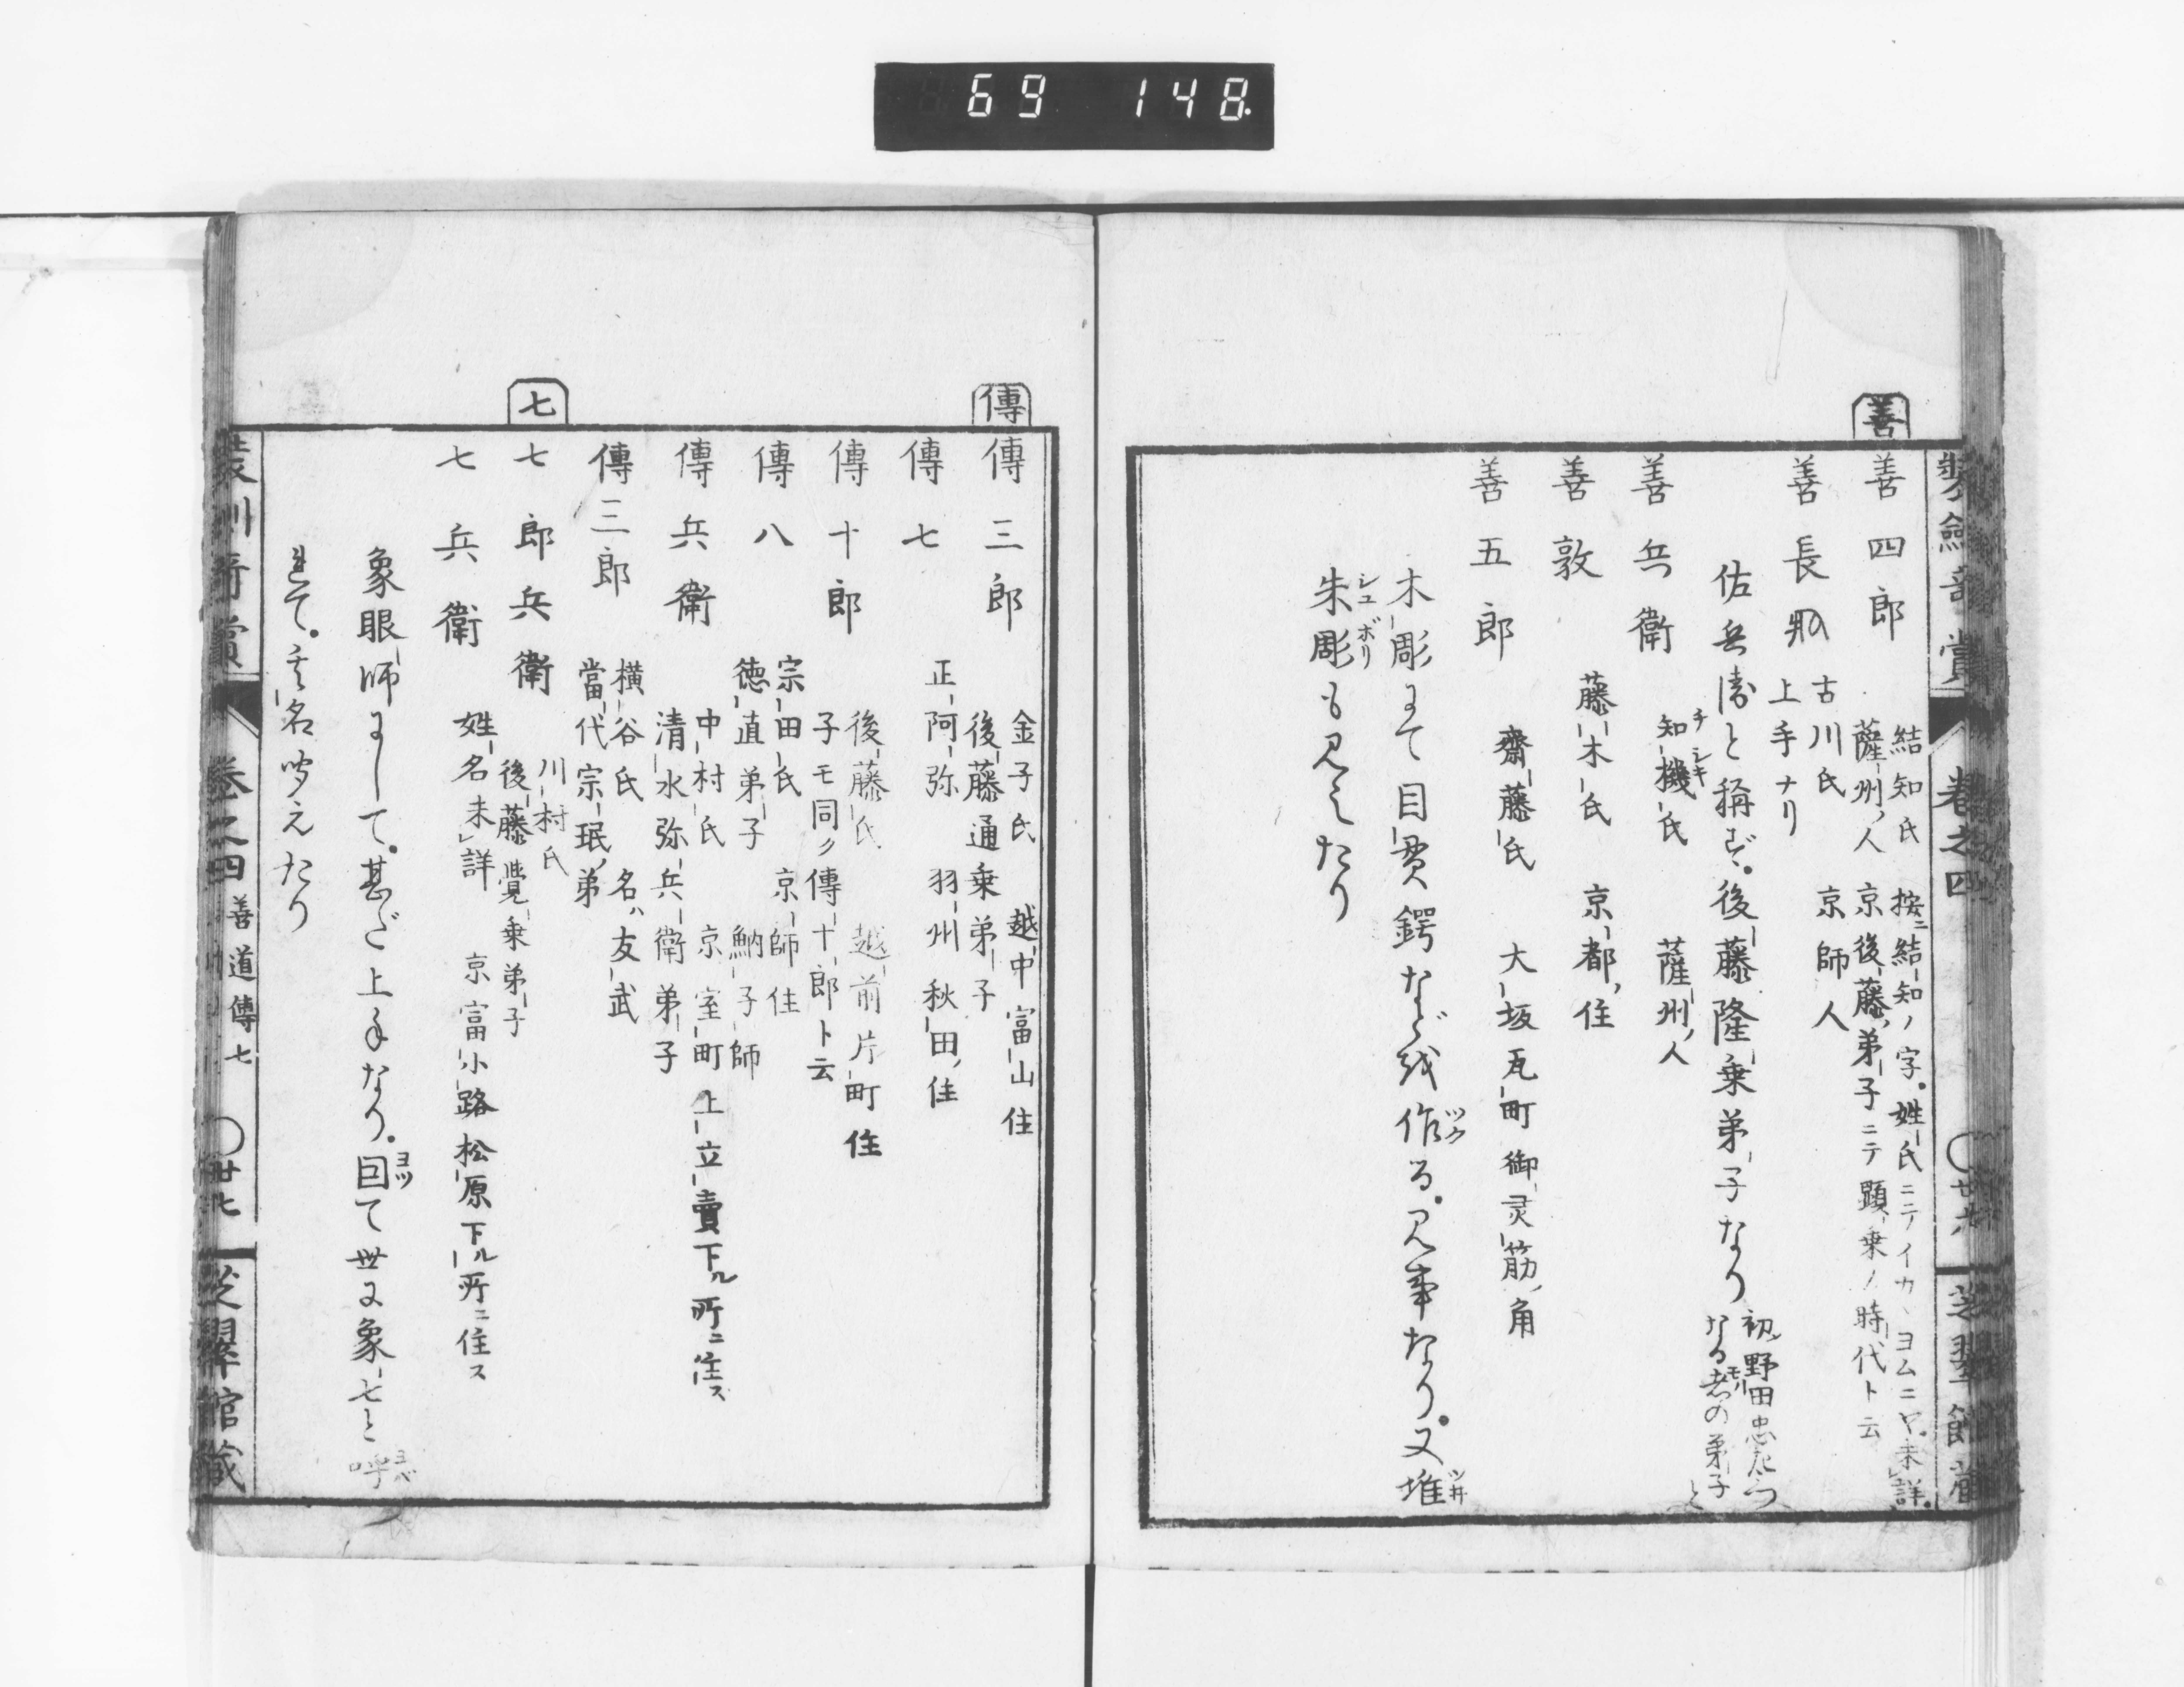 69 148
善
善四郎
結知氏 按ニ結知ノ字。姓氏ニテイカヽヨムニヤ。未詳。
薩州ノ人 京後藤ノ弟子ニテ顕乗ノ時代ト云
善長
古川氏 京師人
上手ナリ
佐兵衛と稱ず。後藤隆乗弟子なり
なる者の弟子
善兵衛
知機氏 薩州ノ人
チシキ
善敦
藤木氏 京都ノ住
善五郎
齋藤氏 大坂瓦町御灵筋ノ角
木彫にて目貫鍔など を作る。見事なり。又堆
ツク
ツ井
朱彫も見えたり
シユボリ
装劔奇賞 巻之四 廿六 芝翠館蔵
傳
傳三郎
金子氏 越中富山住
後藤通乗弟子
傳七
正阿弥 羽州秋田ノ住
傳十郎
後藤氏 越前片町住
子モ同ク傳十郎ト云
傳八
宗田氏 京師住
徳直弟子 魶子師
傳兵衛
中村氏 京室町上立賣下ル所ニ住ス
清水弥兵衛弟子
傳三郎
横谷氏 名ハ友武
當代宗珉ノ弟
七
七郎兵衛
川村氏
後藤覺乗弟子
七兵衛
姓名未詳 京富小路松原下ル所ニ住ス
象眼師にして。甚だ上手なり。因て世に象七と呼
ヨツ
ヨバ
れて。其名聞えたり
装劔奇賞 巻之四 善道傳七 卅七 芝翠館蔵